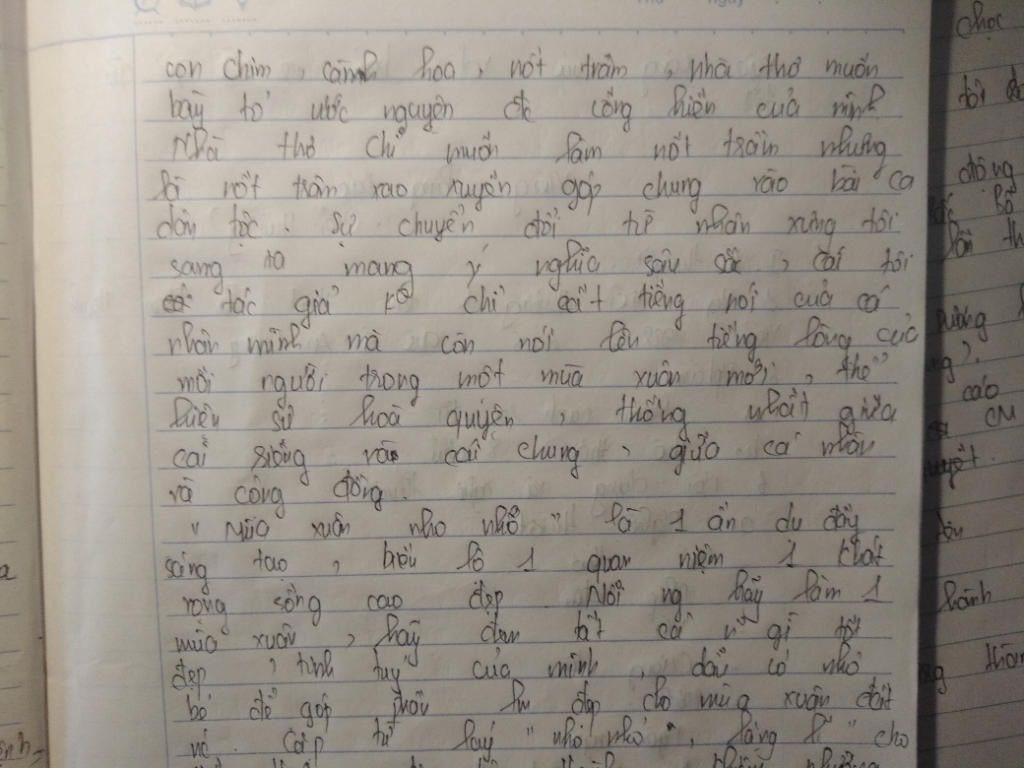 con chim, cành hoa, nốt trầm, nhà thơ muốn
bày tỏ ước nguyện đc cống hiến của mình
Nhà thơ chỉ muốn làm nốt trầm nhưng
là nốt trầm xao xuyến góp chung vào bài ca
dân tộc. Sự chuyển đổi từ nhân xưng tôi
sang ta mang ý nghĩa sâu sắc, cái tôi
tác giả kô chỉ cất tiếng nói của cá
nhân mình mà còn nói lên tiếng lòng của
mỗi người trong một mùa xuân mới, thể
hiện sự hoà quyện, thống nhất giữa
cái riêng và cái chung, giữa cá nhân
và cộng đồng.
"Mùa xuân nho nhỏ" là 1 ẩn dụ đầy
sáng tạo, biểu lộ 1 quan niệm 1 khát
vọng sống cao đẹp. Mỗi ng hãy làm 1
mùa xuân, hãy đem tất cả n~ gì tốt
đẹp, tinh tuý của mình, dẫu có nhỏ
bé để góp phần làm đẹp cho mùa xuân đất
nc. Cặp từ láy "nho nhỏ", "lặng lẽ" cho
chọc
tôi
đông
cao
CM
hành